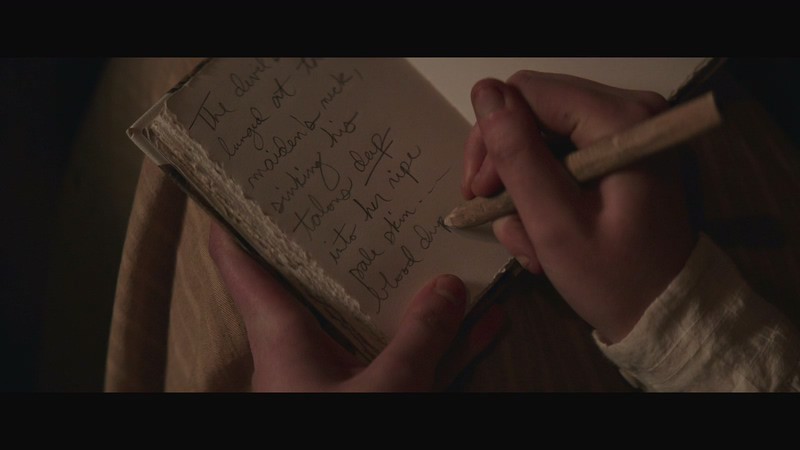 The devil
lunged at
maiden's neck,
sinking his
talons deep
into her ripe
pale skin....
blood drip